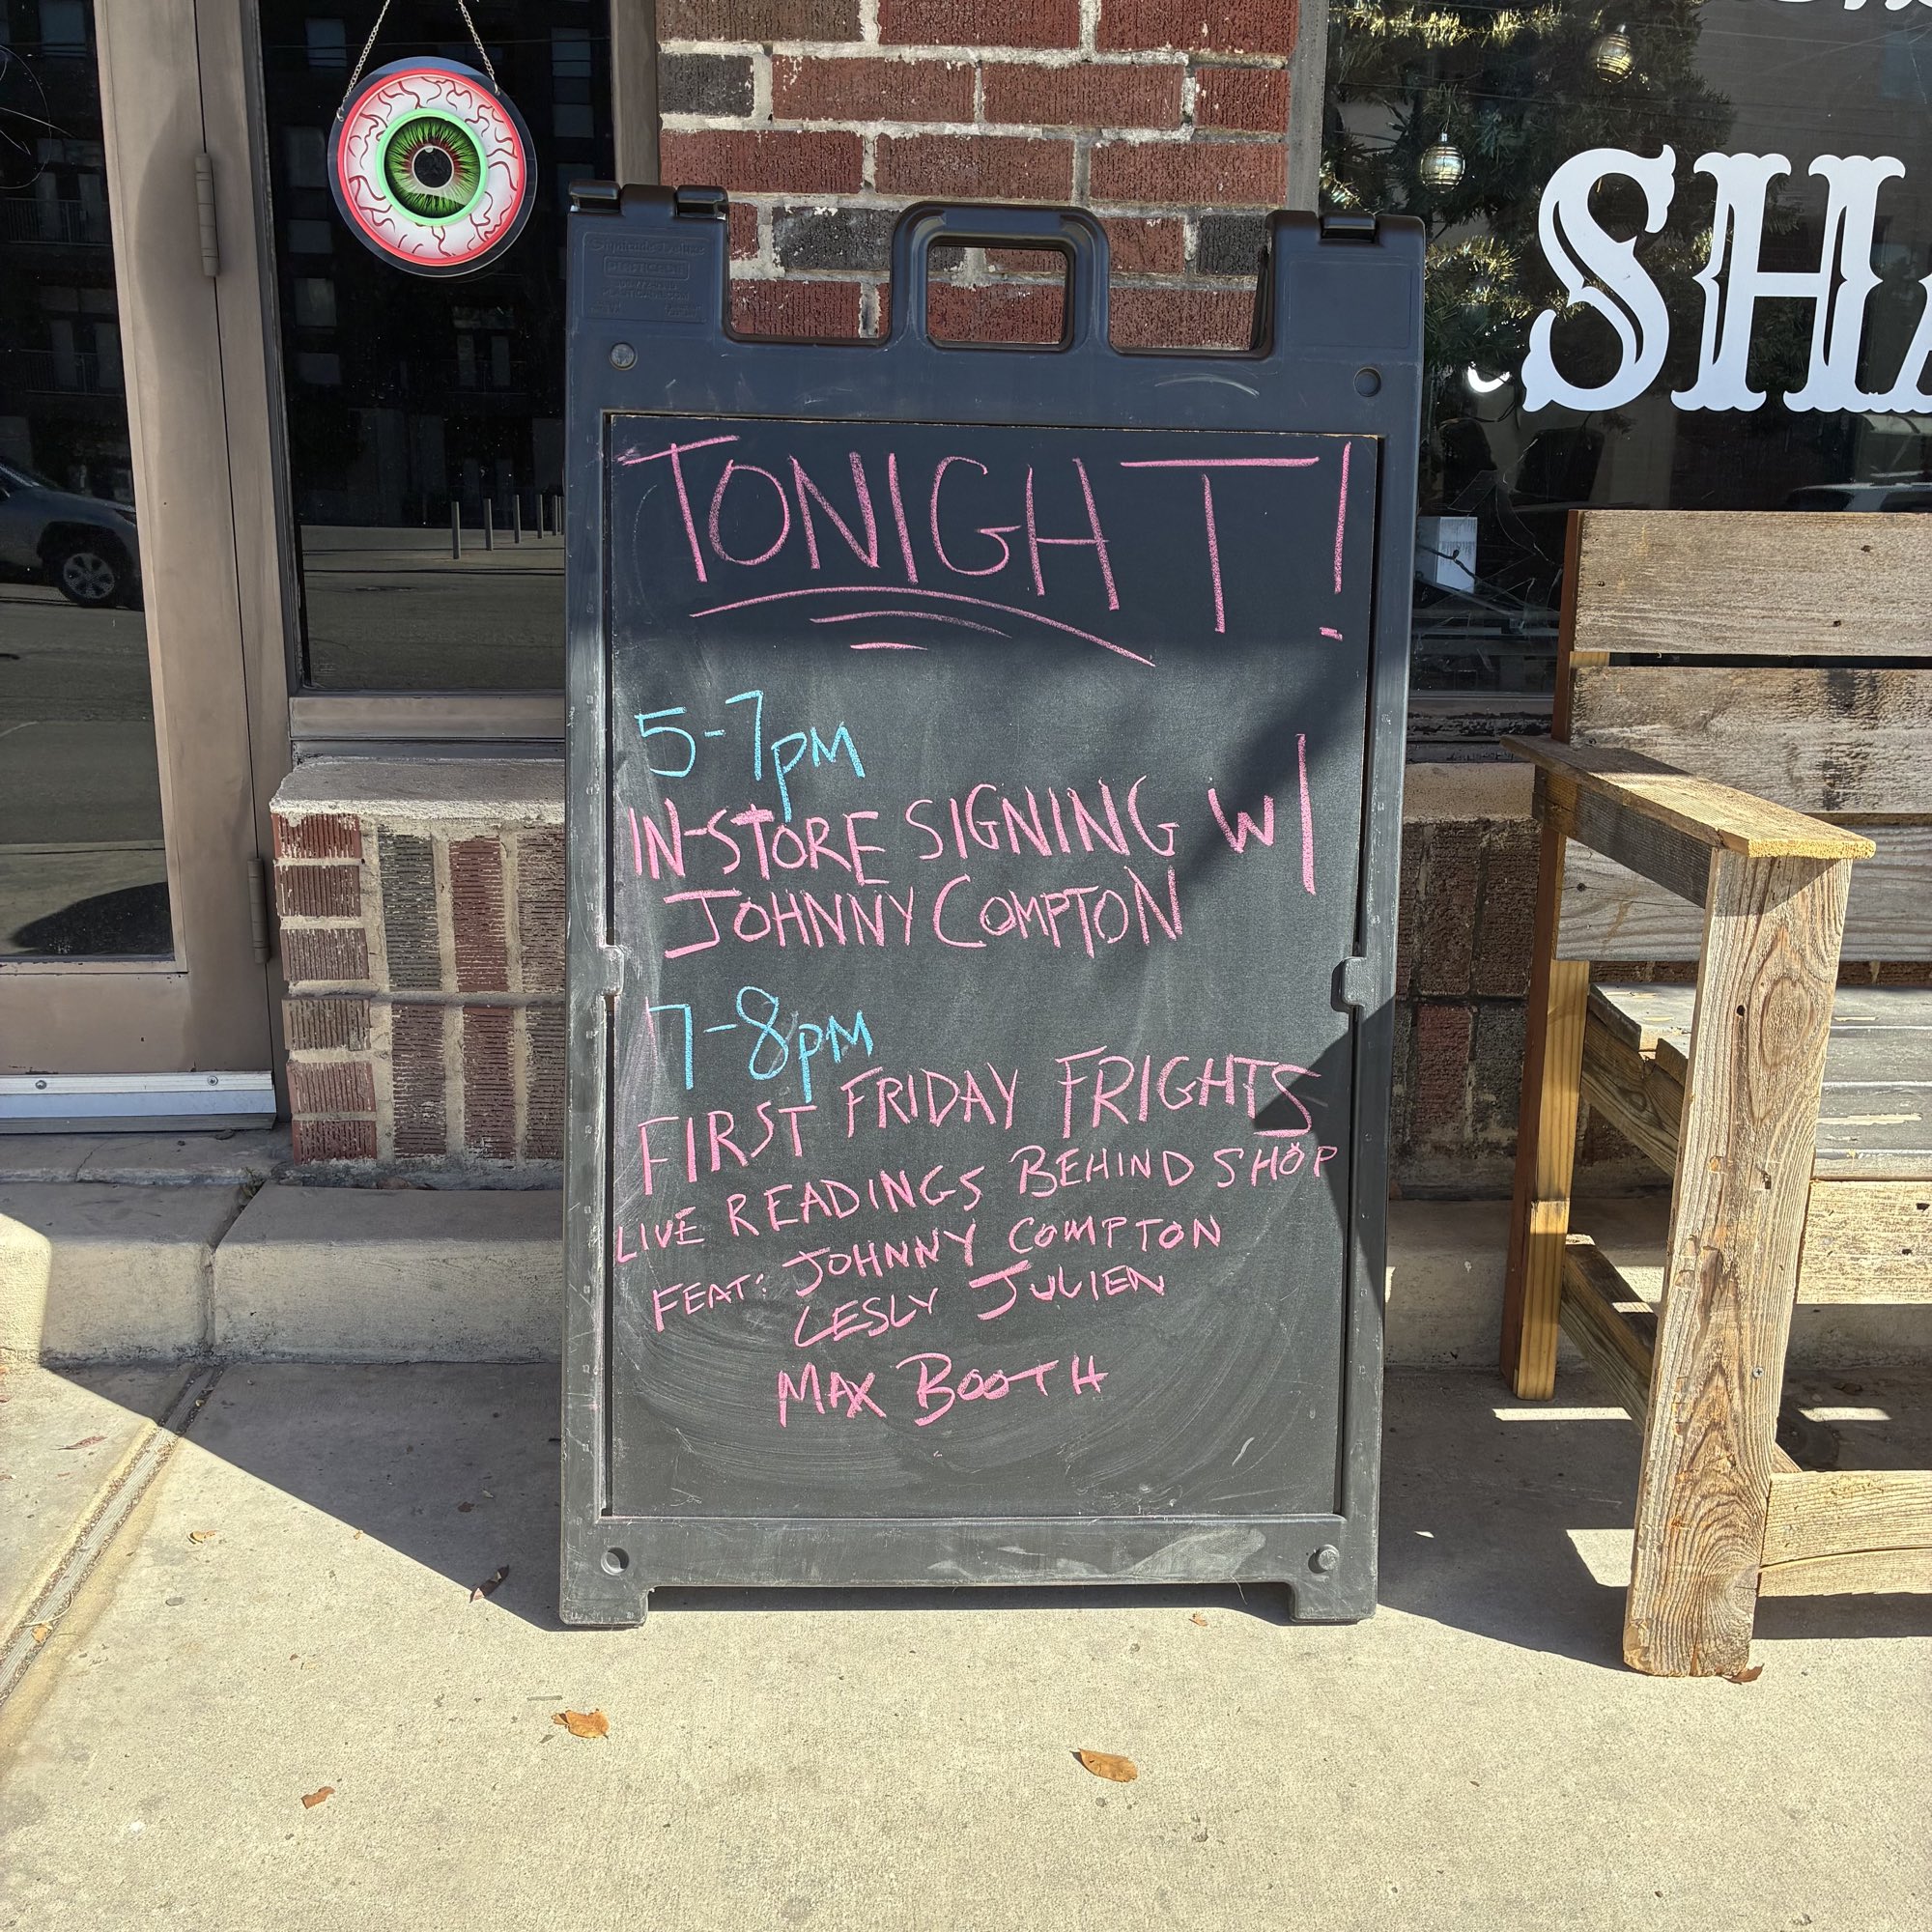 TONIGHT!
5-7PM
IN-STORE SIGNING W/
JOHNNY COMPTON
7-8PM
FIRST FRIDAY FRIGHTS
LIVE READINGS BEHIND SHOP
FEAT: JOHNNY COMPTON
LESLY JULIEN
MAX BOOTH
SHA